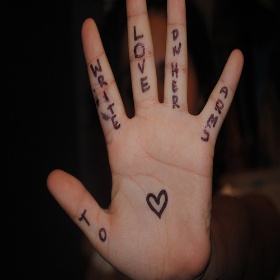 TO
WRITE
LOVE
ON HER
ARMS